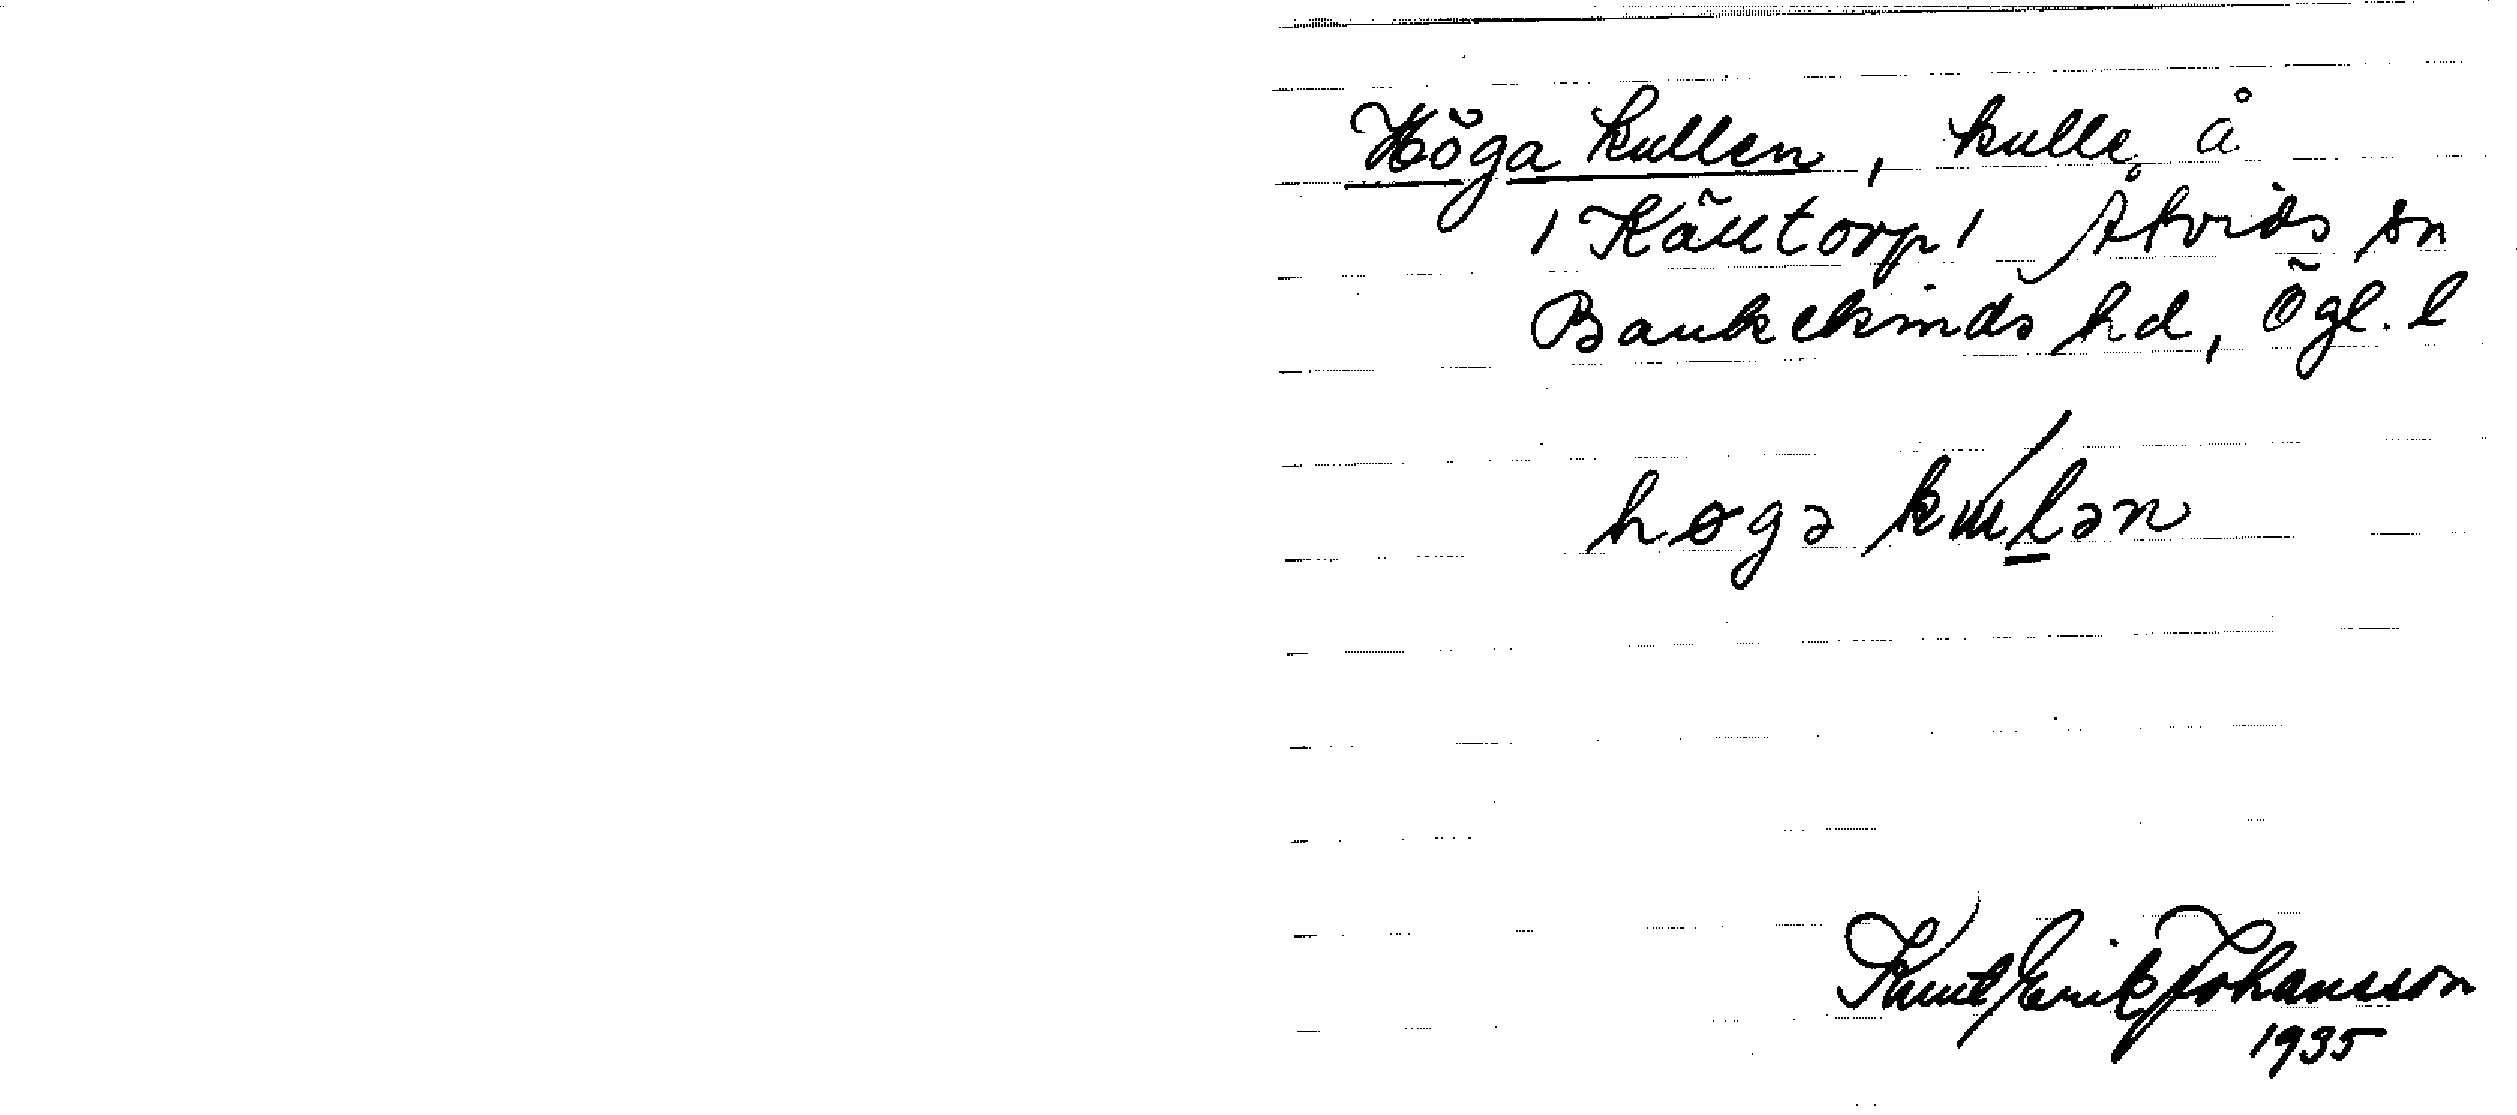 Höga kullen, kulle å
/Källtorp/ Åtvids sn
Bankekinds hd, Ögl. l
høgə kulən
Knut Erik Johansson
1935